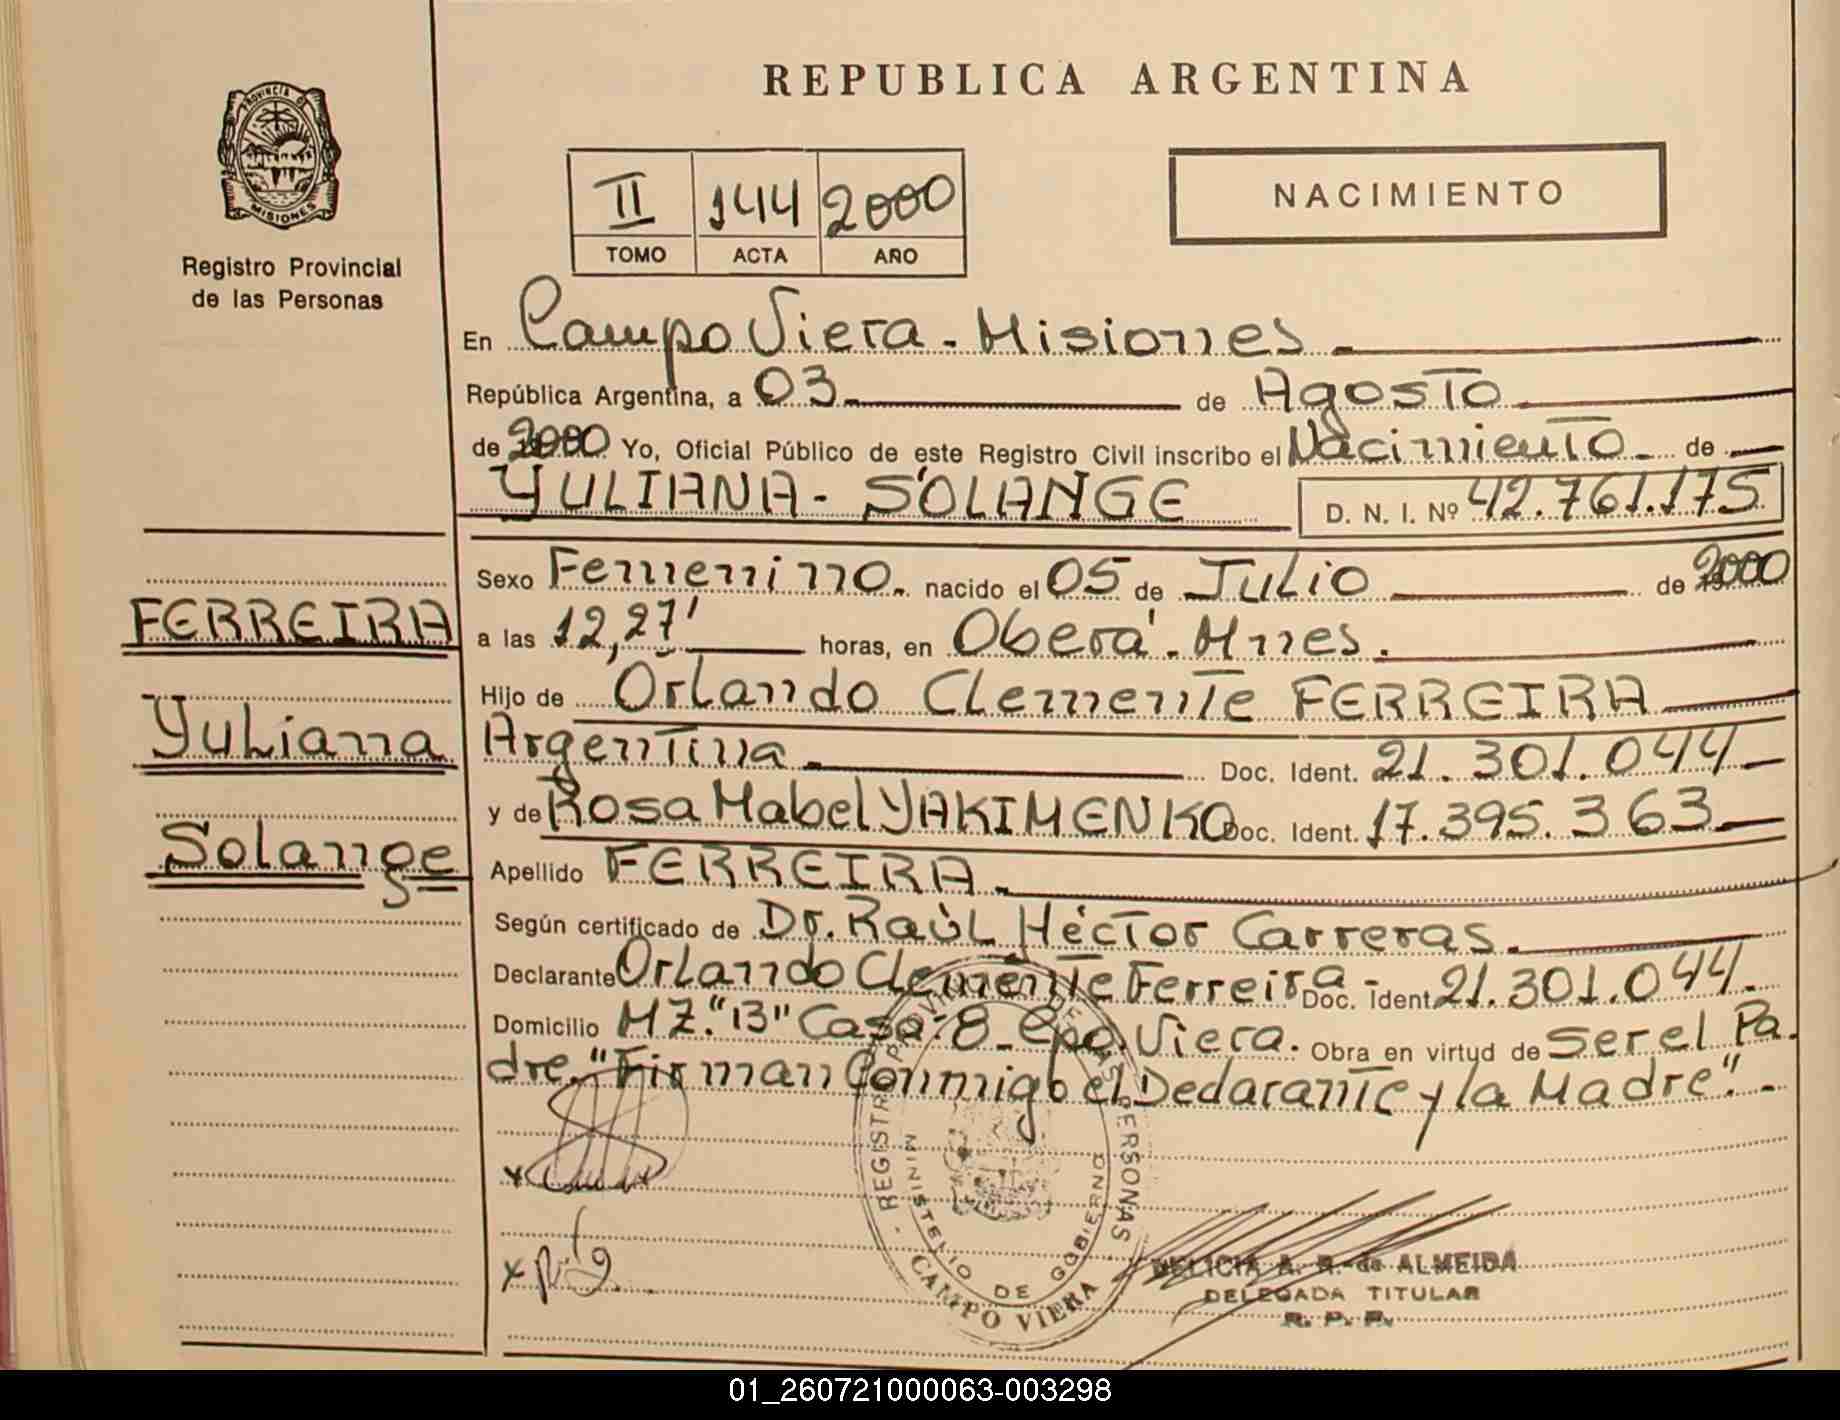 REPUBLICA ARGENTINA
PROVINCIA DE
MISIONES
Registro Provincial
de las Personas
II 144 2000
TOMO ACTA AÑO
NACIMIENTO
En Campo Viera - Misiones
República Argentina, a 03 de Agosto
de 2000 Yo, Oficial Público de este Registro Civil inscribo el Nacimiento de
YULIANA - SOLANGE D. N. I. Nº 42.761.175
Sexo Femenino. nacido el 05 de Julio de 2000
FERREIRA
a las 12,27' horas, en Oberá - Mnes.
Hijo de Orlando Clemente FERREIRA
Yuliana
Argentina Doc. Ident. 21.301.044
y de Rosa Mabel YAKIMENKO Doc. Ident. 17.395.363
Solange
Apellido FERREIRA
Según certificado de Dr. Raúl Héctor Carreras.
Declarante Orlando Clemente Ferreira - Doc. Ident. 21.301.044.
Domicilio MZ. "13" Casa: 8 - Cpo. Viera. Obra en virtud de ser el Pa.
dre. "Firman Conmigo el Declarante y la Madre". -
- REGISTRO PROVINCIAL DE LAS PERSONAS
MINISTERIO DE GOBIERNO
CAMPO VIERA
DELICIA A. R. de ALMEIDA
DELEGADA TITULAR
R. P. P.
01_260721000063-003298